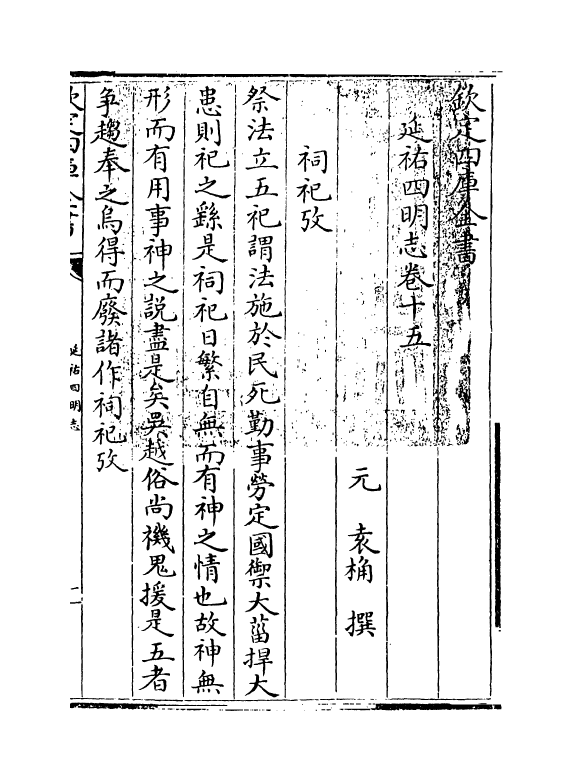 欽定四庫全書
延祐四明志卷十五
元 袁桷 撰
祠祀攷
祭法立五祀謂法施於民死勤事勞定國禦大菑捍大
患則祀之繇是祠祀日繁自無而有神之情也故神無
形而有用事神之説盡是矣吳越俗尚禨鬼援是五者
爭趨奉之烏得而廢諸作祠祀攷
欽定四庫全書
延祐四明志
一